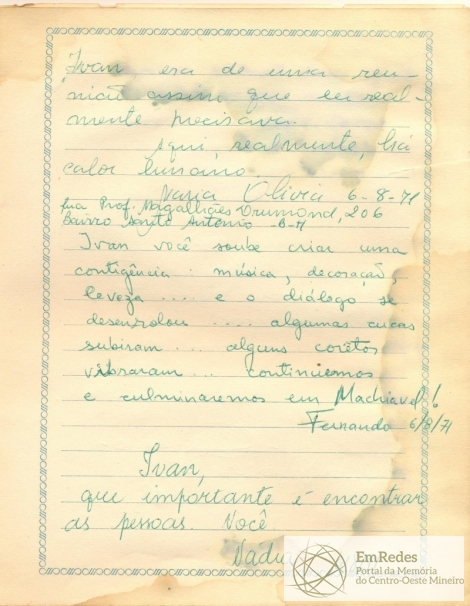 Ivan, era de uma reu-
nião assim que eu real-
mente precisava.
Aqui, realmente, há
calor humano.
Maria Olivia 6-8-71
Rua Prof. Magalhães Drumond, 206
Bairro Santo Antonio - B-H
Ivan você soube criar uma
contigência - música, decoração,
leveza .... e o diálogo se
desenrolou .... algumas cucas
subiram ... alguns coretos
vibraram ... continuemos
e culminaremos em Machiavel!
Fernando 6/8/71
Ivan,
que importante é encontrar
as pessoas. Você.
Nádia
EmRedes
Portal da Memória
do Centro-Oeste Mineiro